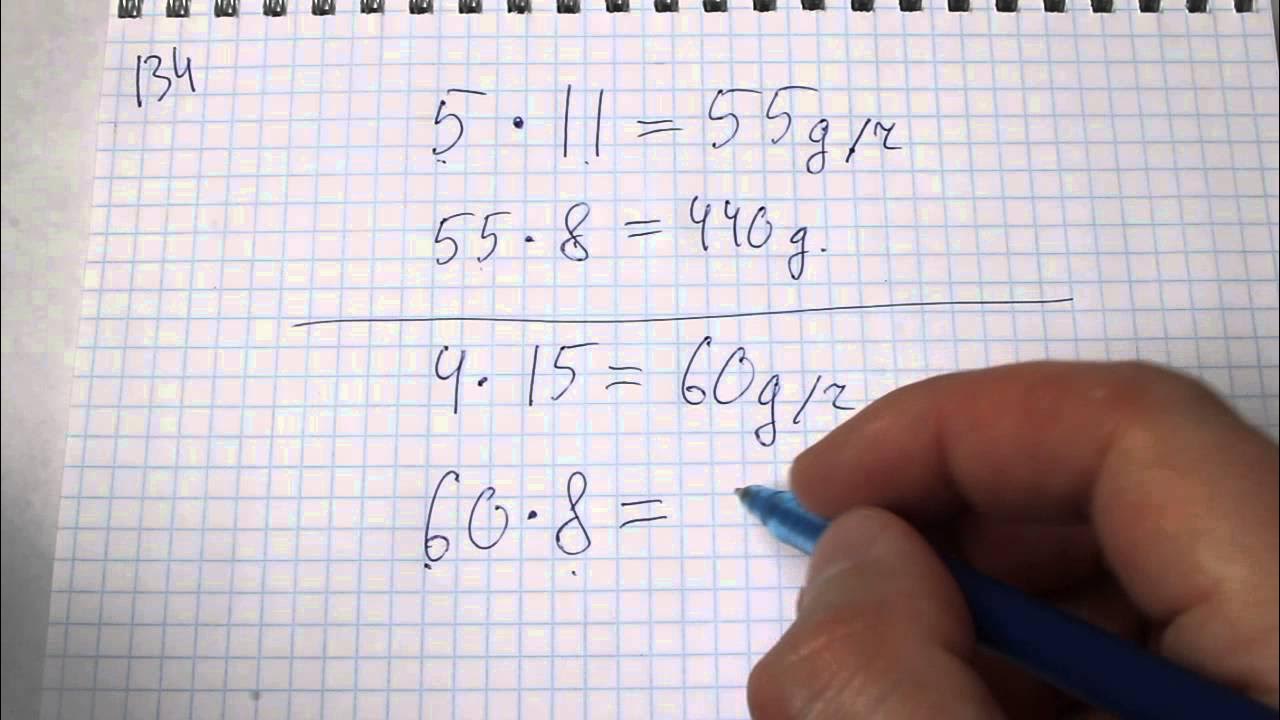 134
5 · 11 = 55 д/ч
55 · 8 = 440 д.
4 · 15 = 60 д/ч
60 · 8 =